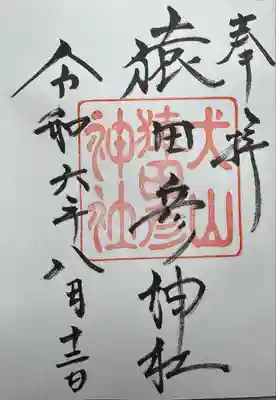 奉拝
猿田彦神社
犬山
猿田彦
神社
令和六年八月十三日